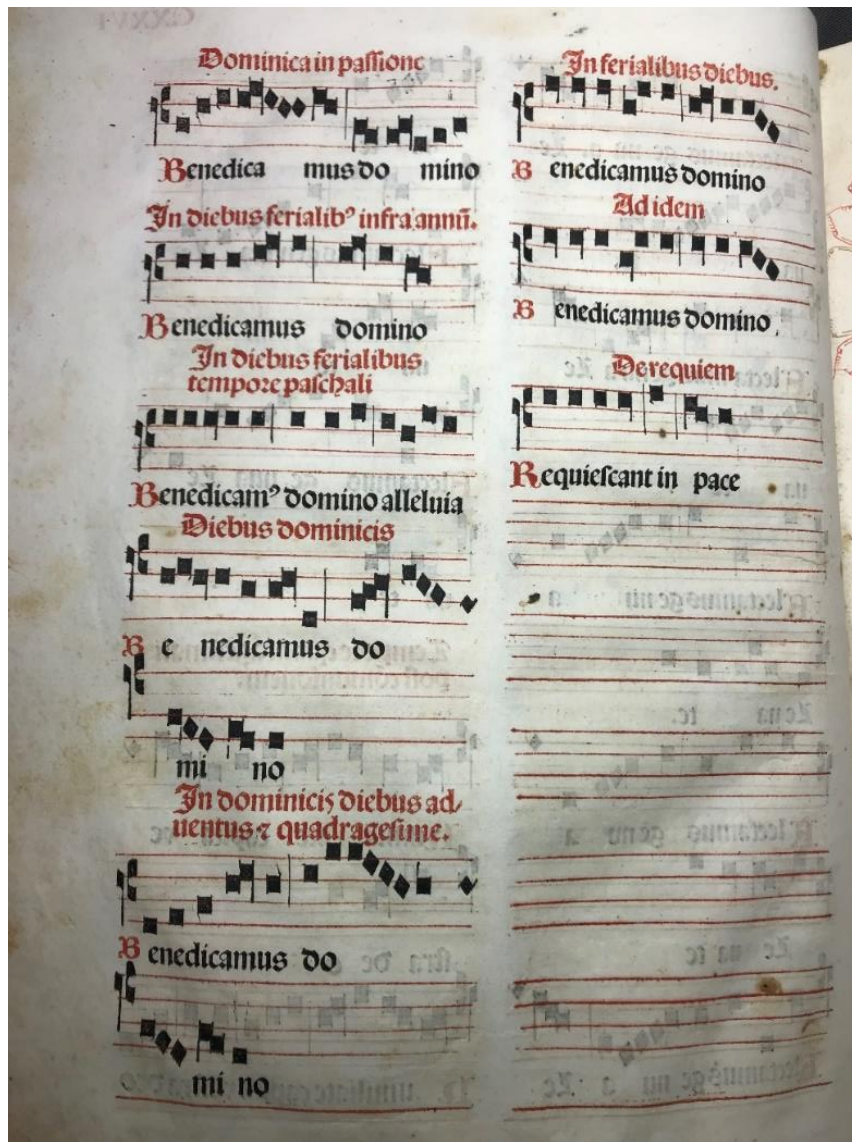 Dominica in paſſione
Benedica mus do mino
In diebus ferialibꝰ infra annū.
Benedicamus domino
In diebus ferialibus
tempore paſchali
Benedicamꝰ domino alleluia
Diebus dominicis
Be nedicamus do
mi no
In dominicis diebus ad/
uentus ⁊ quadrageſime.
Benedicamus do
mi no
In ferialibus diebus.
Benedicamus domino
Ad idem
Benedicamus domino.
De requiem
Requieſcant in pace